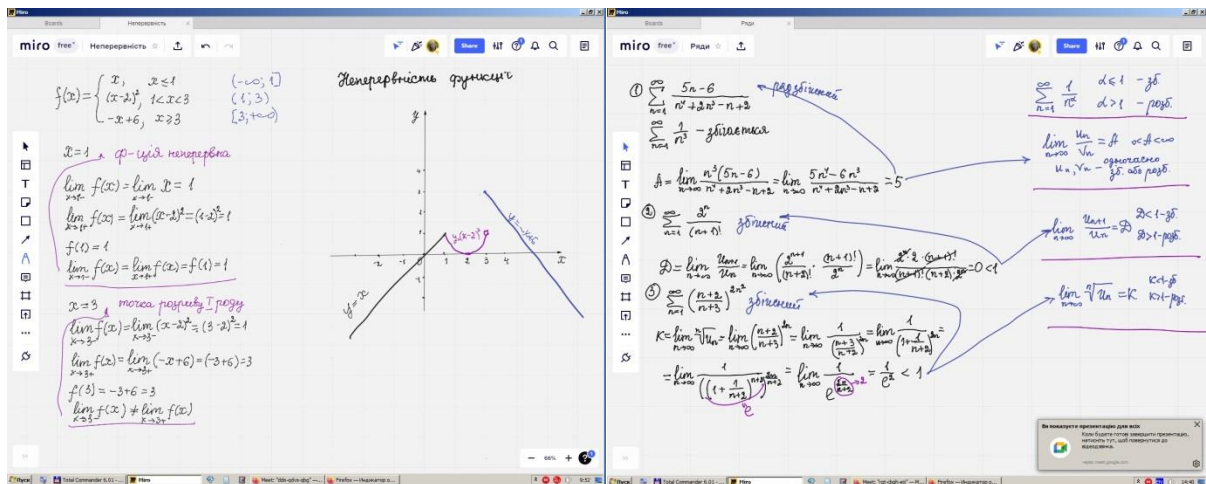 Miro
Boards
Неперервність
miro free Неперервність
Share
f(x) = { x, x ≤ 1 (-∞; 1]
(x-2)², 1 < x < 3 (1; 3)
-x+6, x ≥ 3 [3; +∞)
x = 1 ф-ція неперервна
lim x→1- f(x) = lim x→1- x = 1
lim x→1+ f(x) = lim x→1+ (x-2)² = (1-2)² = 1
f(1) = 1
lim x→1- f(x) = lim x→1+ f(x) = f(1) = 1
x = 3 точка розриву I роду
lim x→3- f(x) = lim x→3- (x-2)² = (3-2)² = 1
lim x→3+ f(x) = lim x→3+ (-x+6) = (-3+6) = 3
f(3) = -3+6 = 3
lim x→3- f(x) ≠ lim x→3+ f(x)
Неперервність функції
y
y=(x-2)²
y=-x+6
-2 -1 1 2 3 4 5 x
y=x
66%
Пуск Total Commander 6.01 - ... Miro
9:52
Miro
Boards
Ряди
miro free Ряди
Share
① ∑ n=1 ∞ (5n-6)/(n⁴+2n³-n+2)
∑ n=1 ∞ 1/n³ - збігається
A = lim n→∞ n³(5n-6)/(n⁴+2n³-n+2) = lim n→∞ (5n⁴-6n³)/(n⁴+2n³-n+2) = 5
② ∑ n=1 ∞ 2ⁿ/(n+1)! збіжний
D = lim n→∞ Uₙ₊₁/Uₙ = lim n→∞ (2ⁿ⁺¹/(n+2)! · (n+1)!/2ⁿ) = lim n→∞ 2ⁿ·2·(n+1)!/((n+1)!·(n+2)·2ⁿ) = 0 < 1
③ ∑ n=1 ∞ ((n+2)/(n+3))^(2n²) збіжний
K = lim n→∞ ⁿ√Uₙ = lim n→∞ ((n+2)/(n+3))^(2n) = lim n→∞ 1/((n+3)/(n+2))^(2n) = lim n→∞ 1/(1+1/(n+2))^(2n) =
= lim n→∞ 1/((1+1/(n+2))^(n+2))^(2n/(n+2)) = lim n→∞ 1/e^(2n/(n+2)) →2 = 1/e² < 1
e
∑ n=1 ∞ 1/n^α α ≤ 1 - зб.
α > 1 - розб.
lim n→∞ Uₙ/Vₙ = A 0<A<∞
Uₙ, Vₙ - одночасно
зб. або розб.
lim n→∞ Uₙ₊₁/Uₙ = D D<1-зб.
D>1-розб.
lim n→∞ ⁿ√Uₙ = K K<1-зб
K>1-розб.
Ви показуєте презентацію для всіх
Коли будете готові завершити презентацію,
натисніть тут, щоб повернутися до
відеодзвінка.
Пуск Total Commander 6.01 - ... Miro
14:40